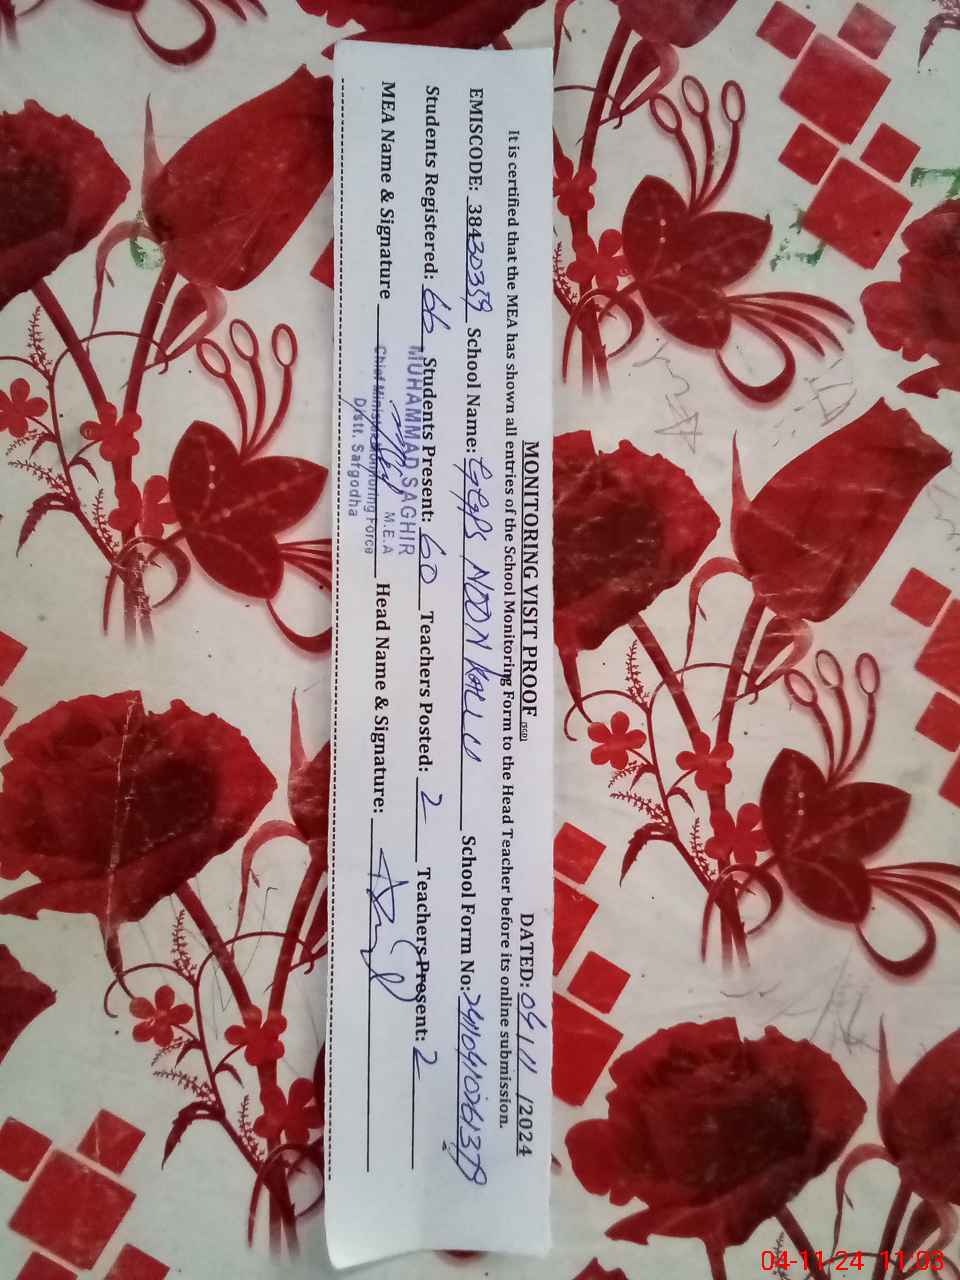 MONITORING VISIT PROOF (SGD) DATED: 04/11/2024
It is certified that the MEA has shown all entries of the School Monitoring Form to the Head Teacher before its online submission.
EMISCODE: 38430359 School Name: GGPS NOON KALU School Form No:
Students Registered: 66 Students Present: 60 Teachers Posted: 2 Teachers Present: 2
MEA Name & Signature Head Name & Signature:
MUHAMMAD SAGHIR
M.E.A
Chief Minister Monitoring Force
Distt. Sargodha
04-11-24 11:03